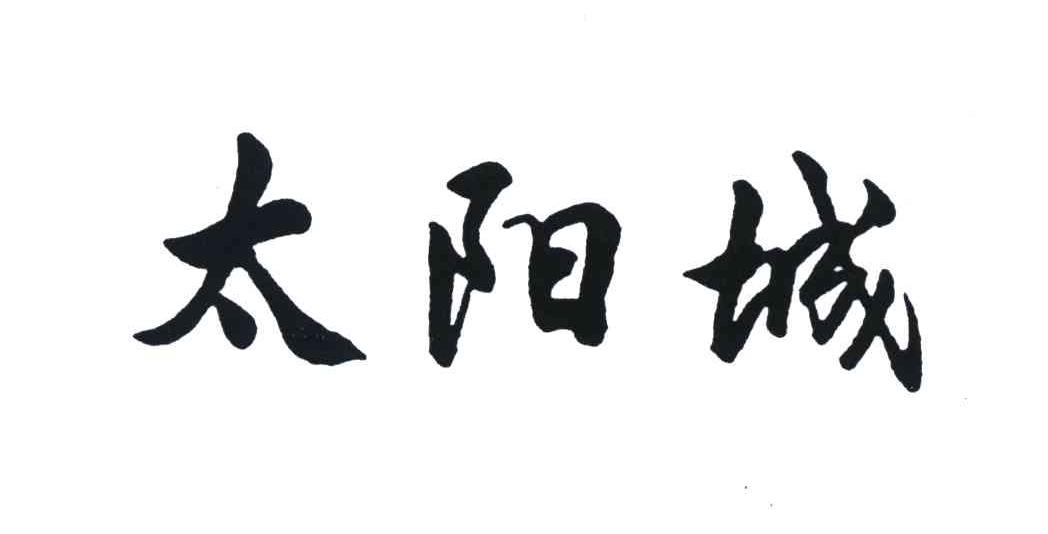 太阳城